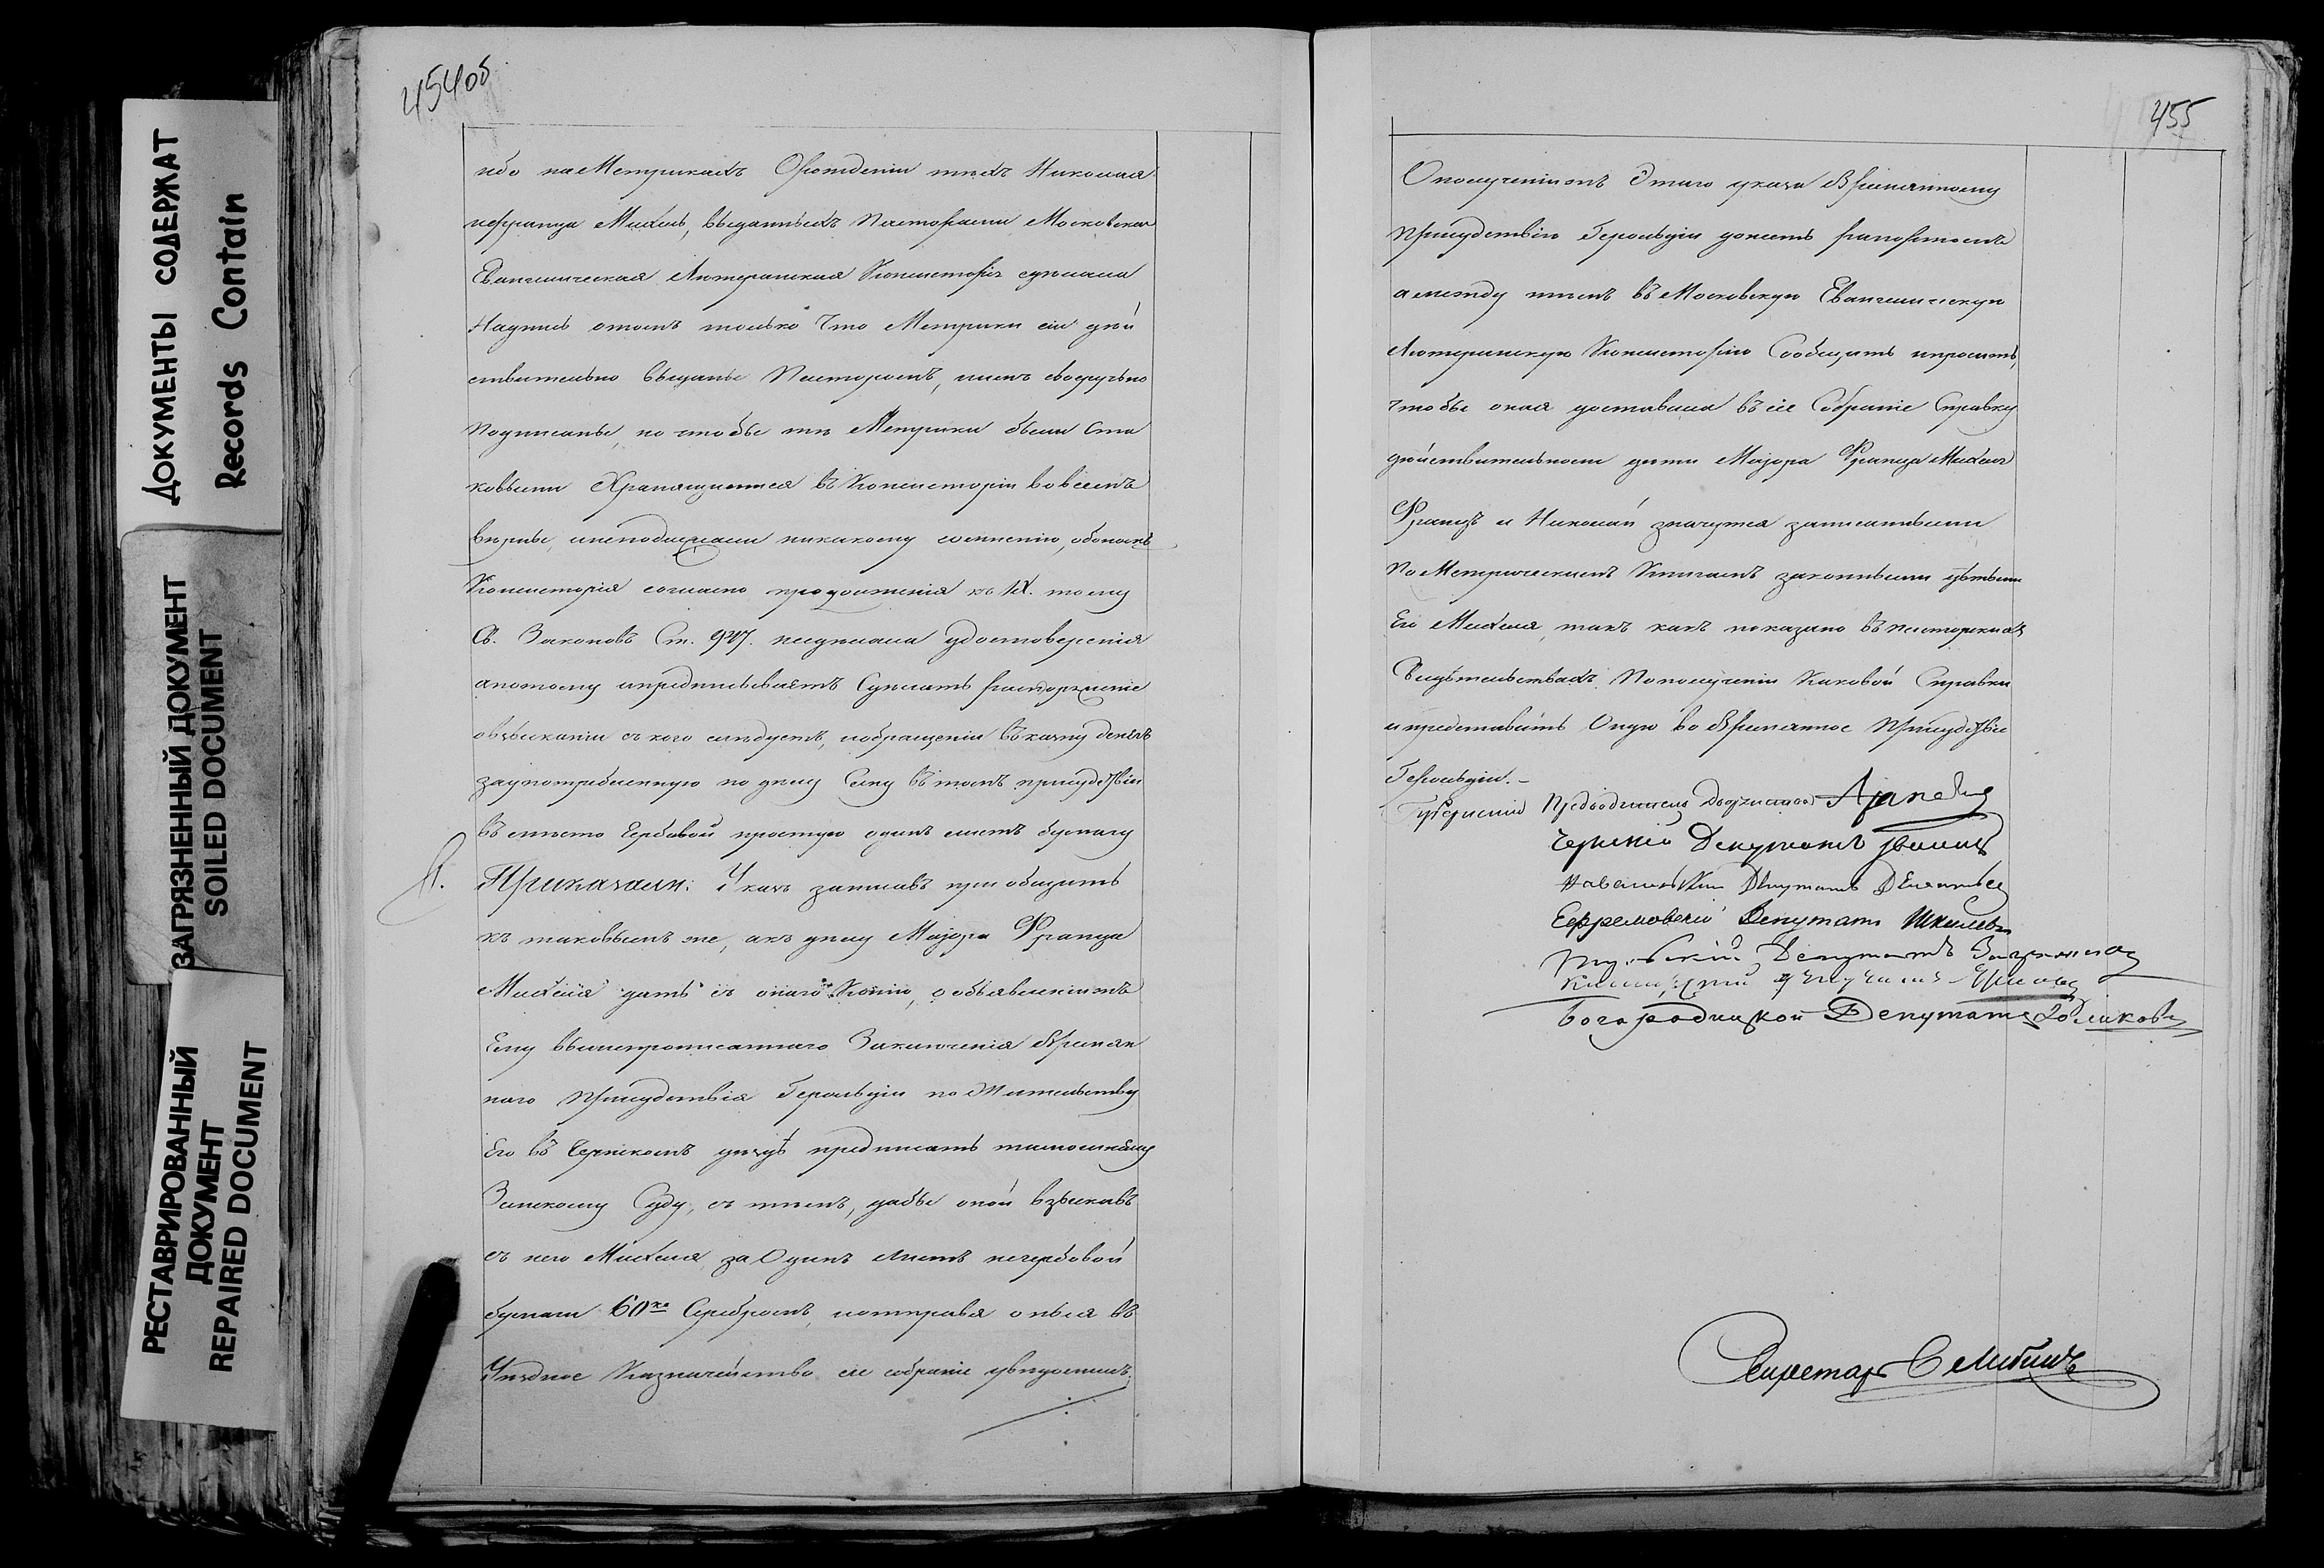 ДОКУМЕНТЫ СОДЕРЖАТ
Records Contain
ЗАГРЯЗНЕННЫЙ ДОКУМЕНТ
SOILED DOCUMENT
РЕСТАВРИРОВАННЫЙ
ДОКУМЕНТ
REPAIRED DOCUMENT
454об
ибо на Метрикахъ Орождении техъ Николая
и Франца Михель, выданныхъ Пасторами Московская
Евангелическая Лютеранская Консисторiя сделала
Надпись отомъ только что Метрики сiи дѣй
ствительно выданы Пасторомъ, и имъ своеручно
Подписаны, но чтобы те Метрики были Ста
ковыми Хранящимися въ Консисторiи во всемъ
верны, и неподлежали никакому сомнению, обономъ
Консисторiя согласно продолженiя къ IX. тому
Св. Законовъ Ст. 947. неучинила удостоверенiя
апотому и предписываетъ Сделать распоряженiе
овзысканiи съ кого следуетъ, и обращенiи въ казну денегъ
заупотребленную по делу Сему въ томъ присудствiи
въ место Гербовой простую одинъ листъ бумагу
Приказали: Указъ записавъ прiобщить
къ таковымъ же, акъ делу Маiора Франца
Михеля дать съ онаго Копiю, о объявленiи жъ
Ему вышепрописаннаго Заключенiя Времян
наго Присудствiя Герольдiи по Жительству
Его въ Чернскомъ уездѣ предписать тамошнему
Земскому Суду, съ темъ, дабы оной взыскавъ
съ него Михеля за Одинъ листъ негербовой
бумаги 60 ко Серебромъ, и отправя оныя въ
Уездное Казначейство сiе собранiе уведомилъ.
455
Ополученiи жъ Этаго указа Времянному
Присудствiю Герольдiи донесть рапортомъ
а между темъ въ Московскую Евангелическую
Лютеранскую Консисторiю Сообщить и просить,
чтобы оная доставила въ сiе Собранiе Справку
дѣйствительноли дети Маiора Франца Михеля
Францъ и Николай значутся записанными
По Метрическимъ Книгамъ законными дѣтьми
Его Михеля, такъ какъ показано въ пасторскихъ
Свидѣтельствахъ. По полученiи Каковой Справки
и представить Оную во Времянное Присудствiе
Герольдiи.
Губернскiй Предводитель Дворянства
Чернскiй Депутатъ
Депутатъ
Ефремовскiй Депутатъ
Депутатъ
Богородицкой Депутатъ
Секретарь